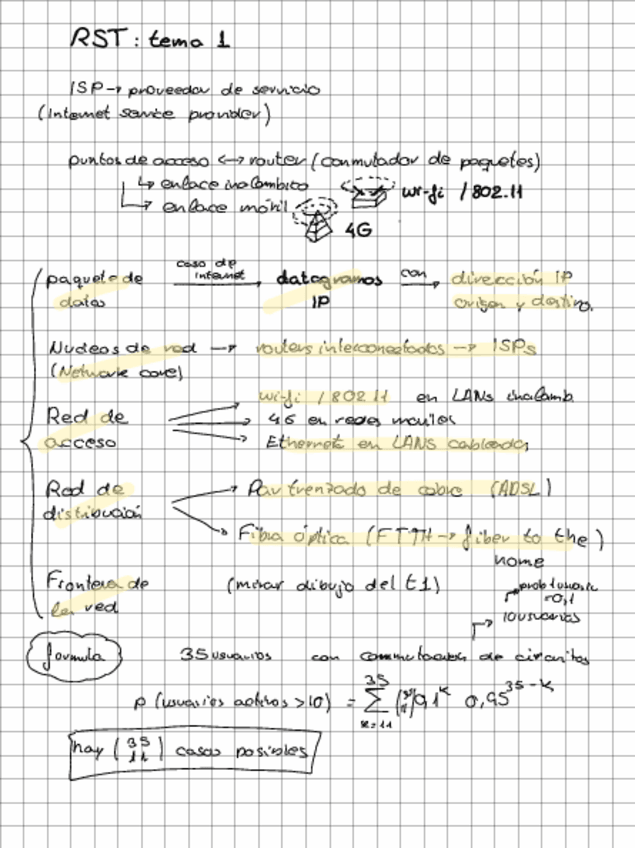 RST: tema 1
ISP → proveedor de servicio
(Internet Service provider)
puntos de acceso ↔ router (conmutador de paquetes)
↳ enlace inalámbrico wi-fi / 802.11
↳ enlace móvil 4G
paquete de datos caso de internet → datagramas IP con → dirección IP origen y destino.
Nucleos de red → routers interconectados → ISPs
(Network core)
Red de acceso
wi-fi / 802 11 en LANs inalamb.
4G en redes moviles
Ethernet en LANS cableadas
Red de distribución
Par trenzado de cobre (ADSL)
Fibra óptica (FTTH → fiber to the home)
Frontera de la red (mirar dibujo del t1)
prob 1 usuario = 0,1
10 usuarios
formula 35 usuarios con conmutacion de circuitos
P (usuarios activos > 10) = 35 Σ k=11 0,1ᵏ 0,95³⁵⁻ᵏ
hay (35 11) casos posibles